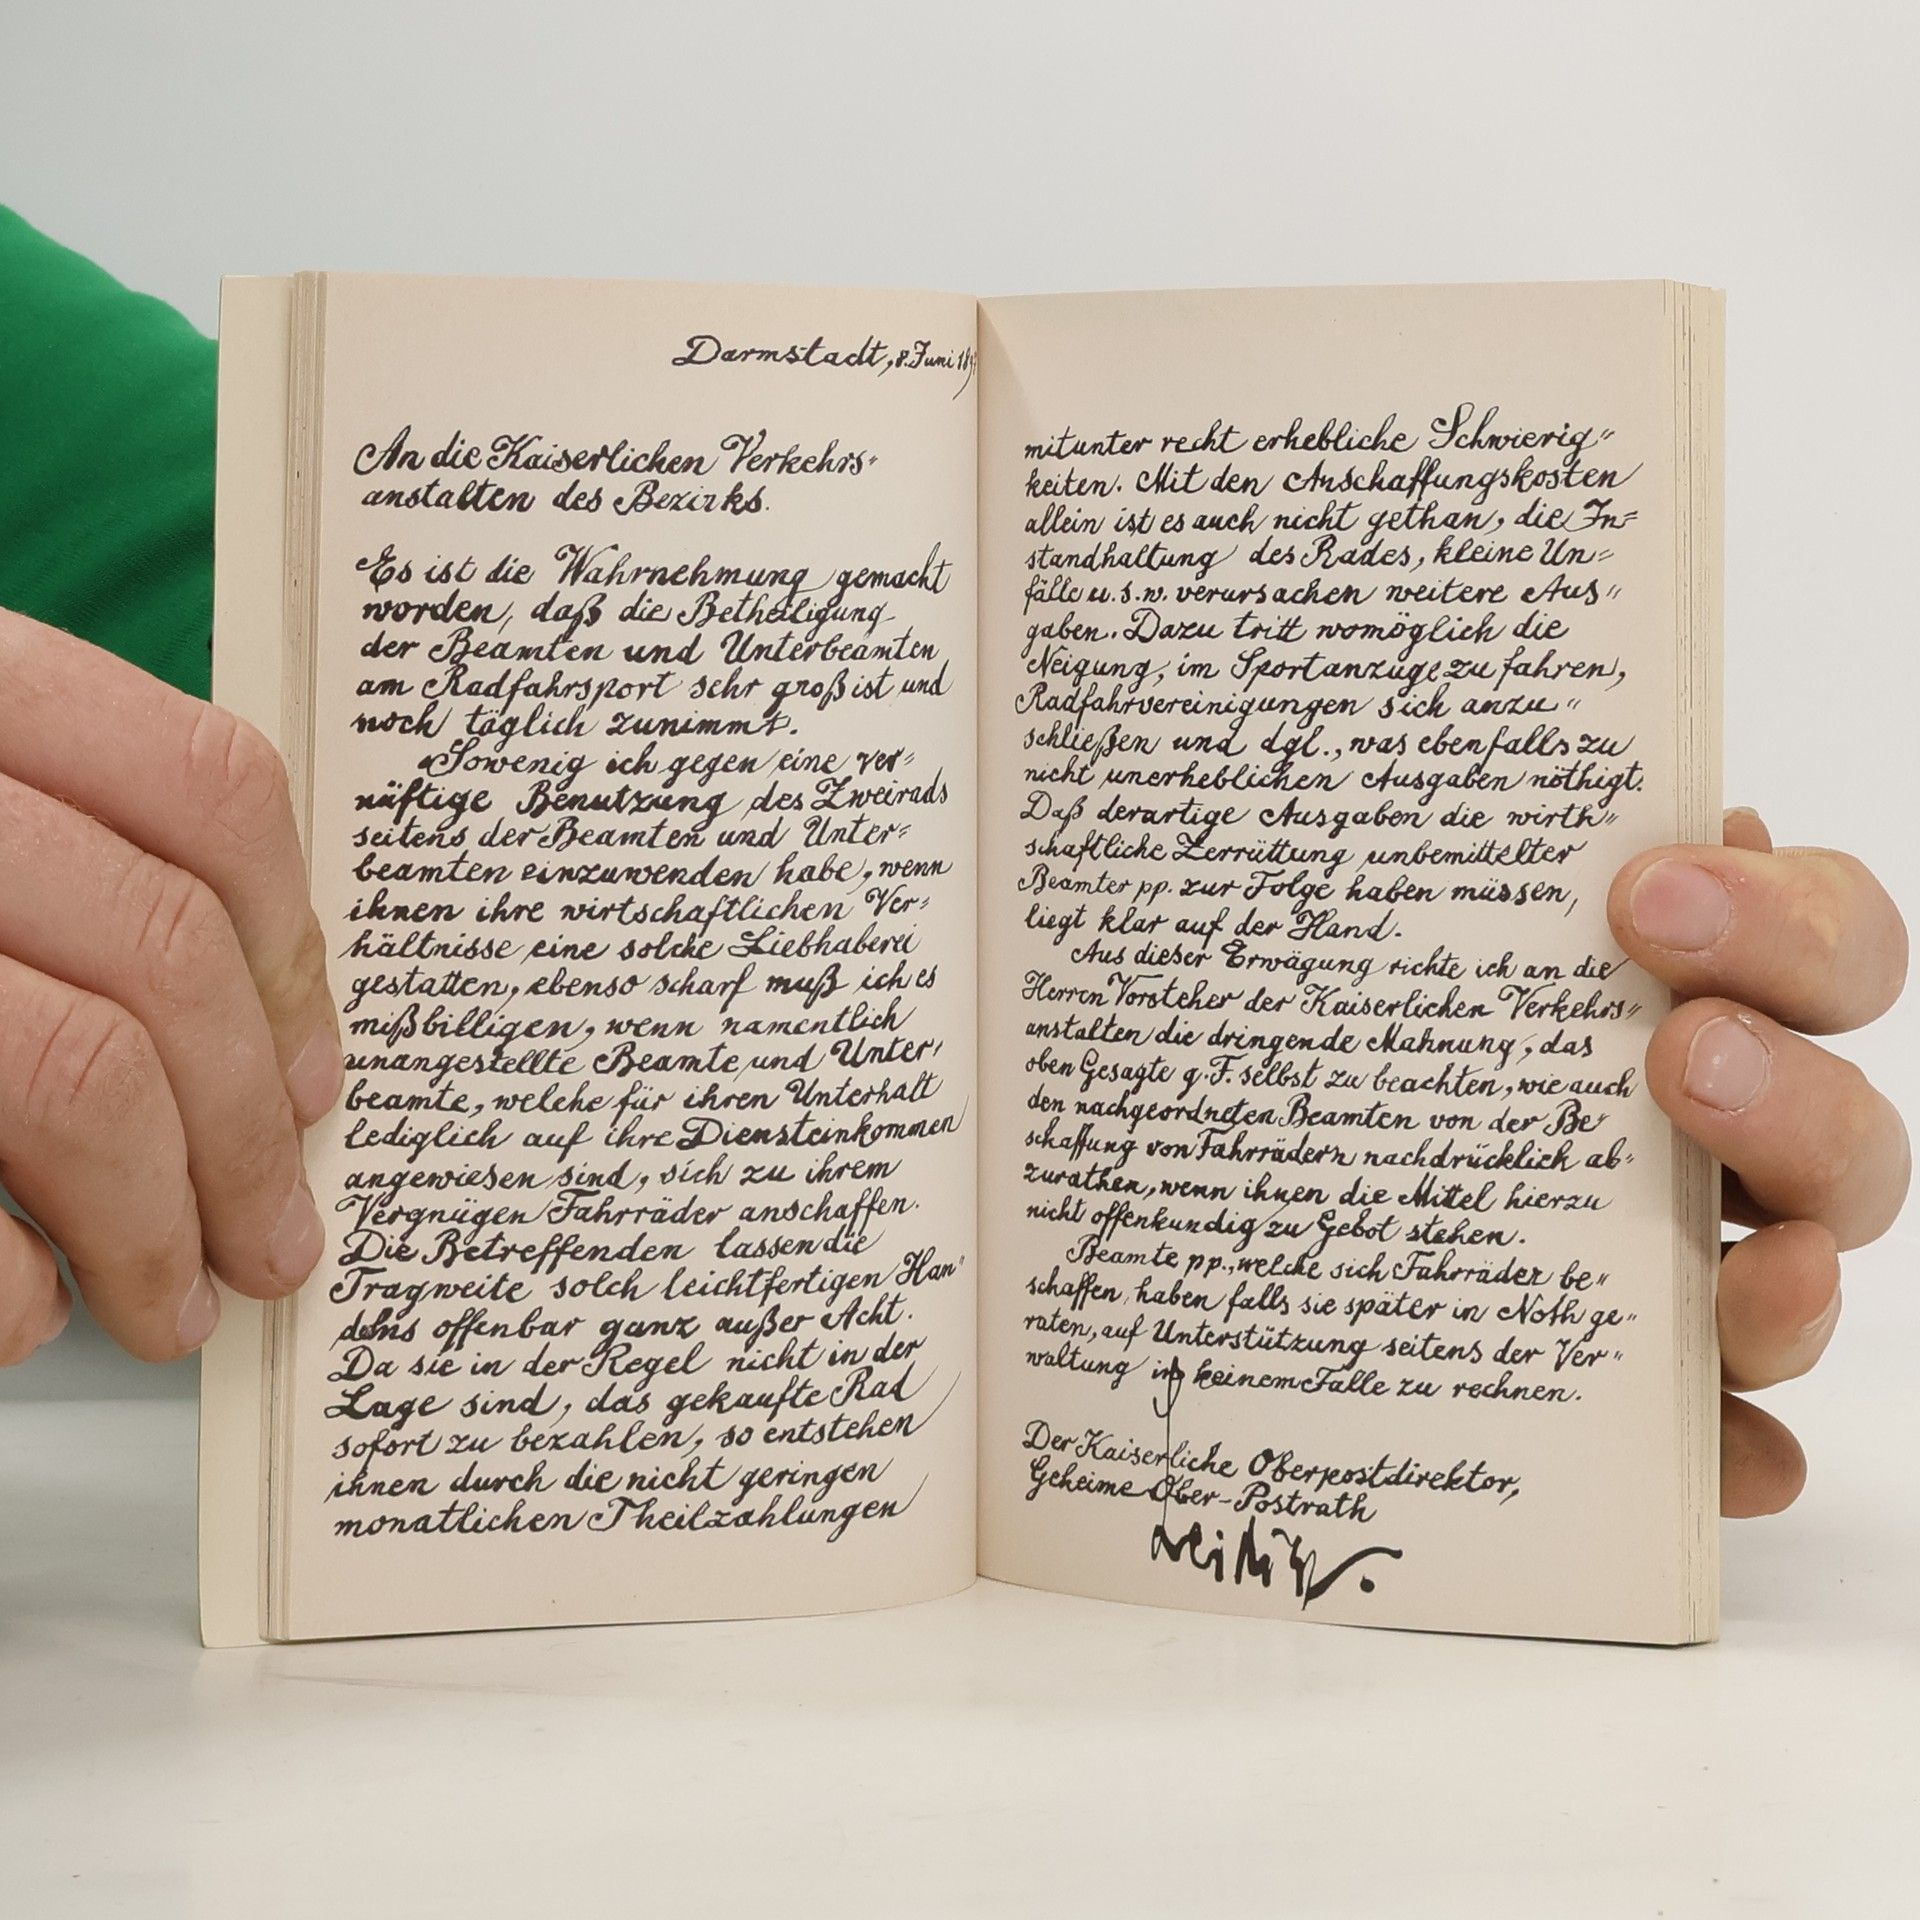 Darmstadt, 8. Juni
An die Kaiserlichen Verkehrs=
anstalten des Bezirks.
Es ist die Wahrnehmung gemacht
worden, daß die Betheiligung
der Beamten und Unterbeamten
am Radfahrsport sehr groß ist und
noch täglich zunimmt.
Sowenig ich gegen eine ver=
nüftige Benutzung des Zweirads
seitens der Beamten und Unter=
beamten einzuwenden habe, wenn
ihnen ihre wirtschaftlichen Ver=
hältnisse eine solche Liebhaberei
gestatten, ebenso scharf muß ich es
mißbilligen, wenn namentlich
unangestellte Beamte und Unter=
beamte, welche für ihren Unterhalt
lediglich auf ihre Diensteinkommen
angewiesen sind, sich zu ihrem
Vergnügen Fahrräder anschaffen.
Die Betreffenden lassen die
Tragweite solch leichtfertigen Han=
delns offenbar ganz außer Acht.
Da sie in der Regel nicht in der
Lage sind, das gekaufte Rad
sofort zu bezahlen, so entstehen
ihnen durch die nicht geringen
monatlichen Theilzahlungen
mitunter recht erhebliche Schwierig=
keiten. Mit den Anschaffungskosten
allein ist es auch nicht gethan, die In=
standhaltung des Rades, kleine Un=
fälle u.s.w. verursachen weitere Aus=
gaben. Dazu tritt womöglich die
Neigung, im Sportanzuge zu fahren,
Radfahrvereinigungen sich anzu=
schließen und dgl., was ebenfalls zu
nicht unerheblichen Ausgaben nöthigt.
Daß derartige Ausgaben die wirth=
schaftliche Zerrüttung unbemittelter
Beamter pp. zur Folge haben müssen,
liegt klar auf der Hand.
Aus dieser Erwägung richte ich an die
Herren Vorsteher der Kaiserlichen Verkehrs=
anstalten die dringende Mahnung, das
oben Gesagte g. F. selbst zu beachten, wie auch
den nachgeordneten Beamten von der Be=
schaffung von Fahrrädern nachdrücklich ab=
zurathen, wenn ihnen die Mittel hierzu
nicht offenkundig zu Gebot stehen.
Beamte pp., welche sich Fahrräder be=
schaffen, haben falls sie später in Noth ge=
raten, auf Unterstützung seitens der Ver=
waltung in keinem Falle zu rechnen.
Der Kaiserliche Oberpostdirektor,
Geheime Ober-Postrath